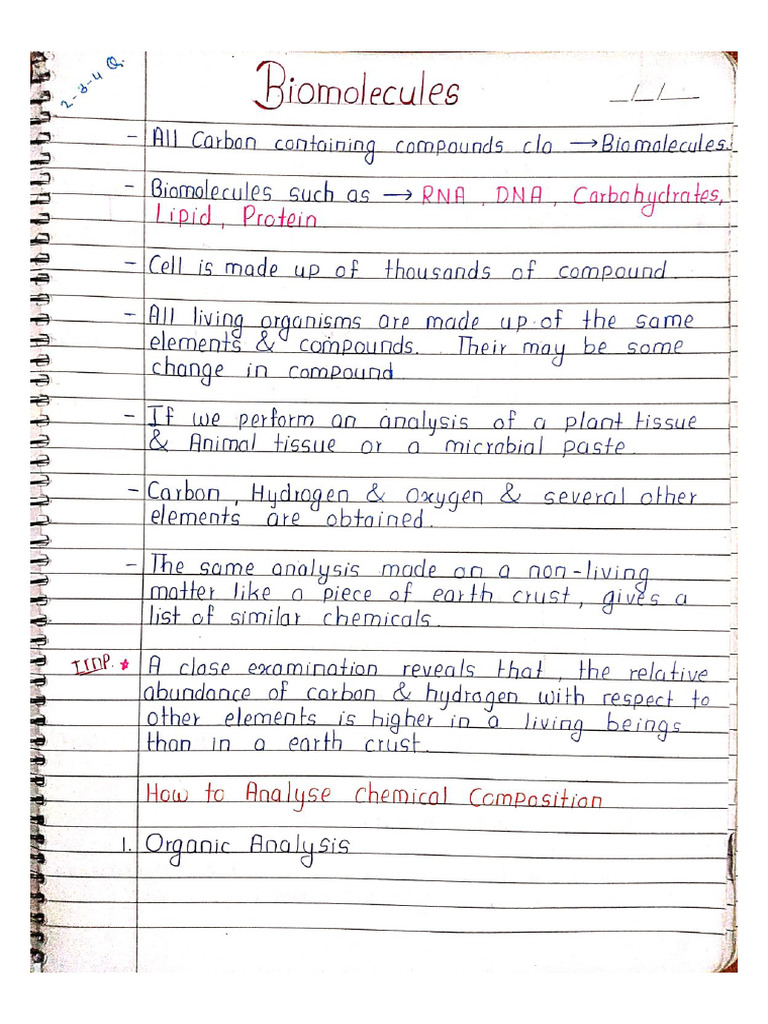 2-3-4 Q.
Biomolecules
_/_/__
- All Carbon containing compounds clo → Biomolecules.
- Biomolecules such as → RNA, DNA, Carbohydrates,
Lipid, Protein
- Cell is made up of thousands of compound.
- All living organisms are made up of the same
elements & compounds. Their may be some
change in compound
- If we perform an analysis of a plant tissue
& Animal tissue or a microbial paste.
- Carbon, Hydrogen & Oxygen & several other
elements are obtained.
- The same analysis made on a non-living
matter like a piece of earth crust, gives a
list of similar chemicals.
IMP. * A close examination reveals that, the relative
abundance of carbon & hydrogen with respect to
other elements is higher in a living beings
than in a earth crust.
How to Analyse Chemical Composition
1. Organic Analysis